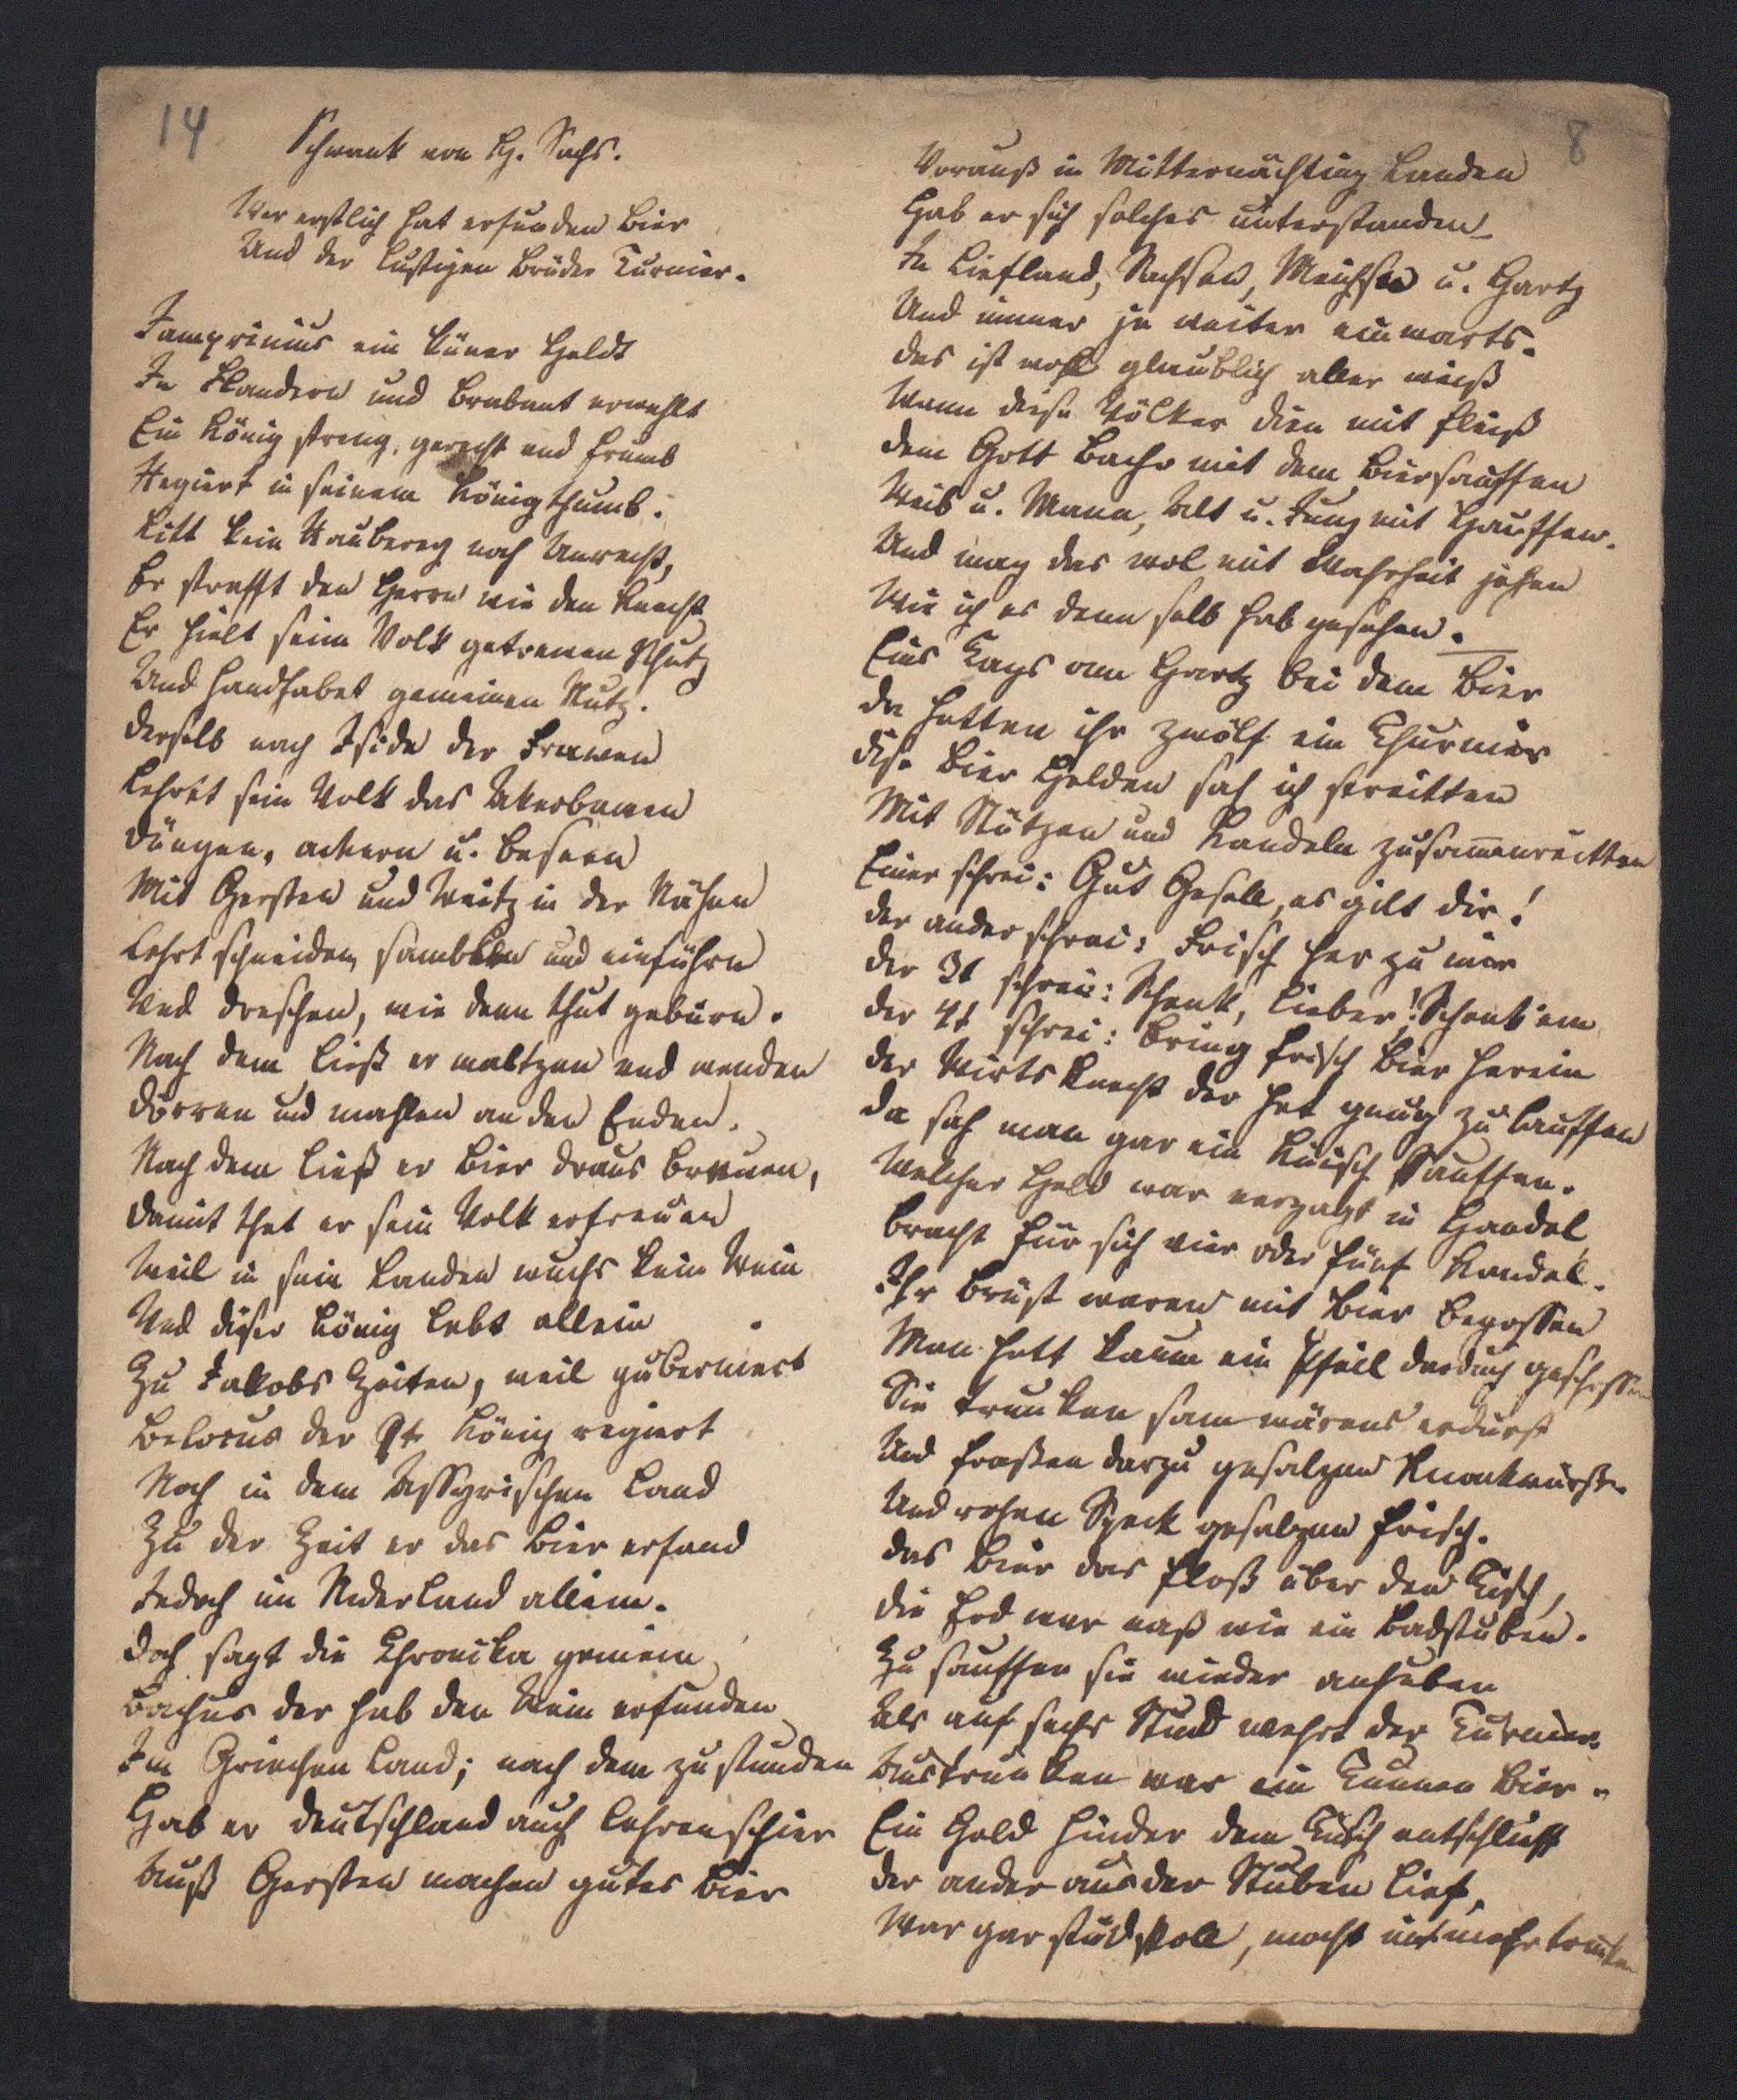 14
Schwank von H. Sachs.
Wer erstlich hat erfunden Bier
Und der lustigen Brüder Turnier.
Jamprinius ein küner Heldt
In Flandern und Brabant erwehlt
Ein König streng, gerecht und frumb
Regiert in seinem Königthumb.
Litt kein Rauberey noch Unrecht,
Er strafft den Herrn wie den Knecht
Er hielt seim Volk getrewen Schutz
Und handhabet gemeinen Nutz.
Derselb nach Iside der Frawen
Lehrt sein Volk das Akerbawen
Düngen, ackern u. beseen
Mit Gersten und Weitz in der Nähen
Lehrt schneiden, samblen und einführn
Und dreschen, wie denn thut gebürn.
Nach dem ließ er maltzen und wenden
Dörren und mahlen an den Enden.
Nach dem ließ er Bier draus brewen,
Damit thet er sein Volk erfreuen
Weil in sein Landen wuchs kein Wein
Und dieser König lebt allein
Zu Jakobs Zeiten, weil guberniert
Belocus der 9t König regiert
Noch in dem Assyrischen Land
Zu der Zeit er das Bier erfand
Jedoch im Niderland allein.
Doch sagt die Chronika gemein
Bachus der hab den Wein erfunden
Im Griechen Land; nach dem zu stunden
Hab er Deutschland auch lehren schier
Auß Gersten machen gutes Bier
8
Vorauß in Mitternächting Landen
Hab er sich solches unterstanden
In Liefland, Sachsen, Meichsen u. Hartz
Und immer je weiter einwarts.
Das ist wohl glaublich aller weiß
Wann diese Völker dien mit fleiß
Dem Gott Bacho mit dem Biersauffen
Weib u. Mann, Alt u. Jung mit Hauffen.
Und mag das wol mit Wahrheit jehen
Wie ich es denn selb hab gesehen.
Eins Tags am Hartz bei dem Bier
Da hetten ihr zwölf ein Thurnier
Dise Bier Helden sah ich streitten
Mit Stützen und Kandeln zusam̅enreitten
Einer schrei: Gut Gesell, es gilt dir!
Der ander schrei: Frisch her zu mir
Der 3t schrei: Schenk, lieber! Schenk ein
Der 4t schrei: Bring frisch Bier herein
Der Wirts Knecht der het genug zu lauffen
Da sah man gar ein künisch Sauffen.
Welcher Held war verzagt in Handel
Bracht für sich vier oder fünf Kandel.
Ihr Brüst waren mit Bier begossen
Man hett kaum ein Pfeil dardurch geschossen
Sie trunken sam wärens erdürst
Und fraßen darzu gesalzen Knackwürst.
Und rohen Speck gesalzen frisch.
Das Bier das floß über den Tisch,
Die Erd war naß wie ein Badstuben.
Zu sauffen sie wieder anhuben
Als auf sechs Stund wehrt der Turnier
Austrunken war ein Tunnen Bier.
Ein Held hinder dem Tisch entschlieff
Der ander aus der Stuben lief,
War gar studvoll, mocht nit mehr trinken